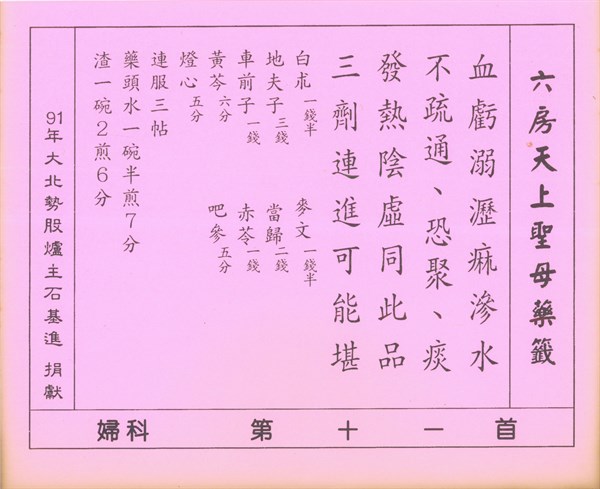 六房天上聖母藥籤
血虧溺瀝痳滲水
不疏通、恐聚、痰
發熱陰虛同此品
三劑連進可能堪
白朮一錢半 麥文一錢半
地夫子三錢 當歸二錢
車前子一錢 赤苓一錢
黃芩六分 吧參五分
燈心五分
連服三帖
藥頭水一碗半煎7分
渣一碗2煎6分
91年大北勢股爐主石基進 捐獻
首一十第 科婦